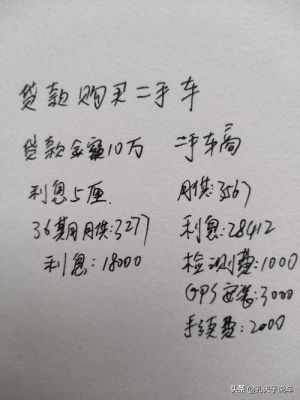 贷款购买二手车
贷款金额10万
利息5厘
36期月供:3277
利息:18000
二手车商
月供:3567
利息:28412
检测费:1000
GPS安装:3000
手续费:2000
头条 @孔夫子说车